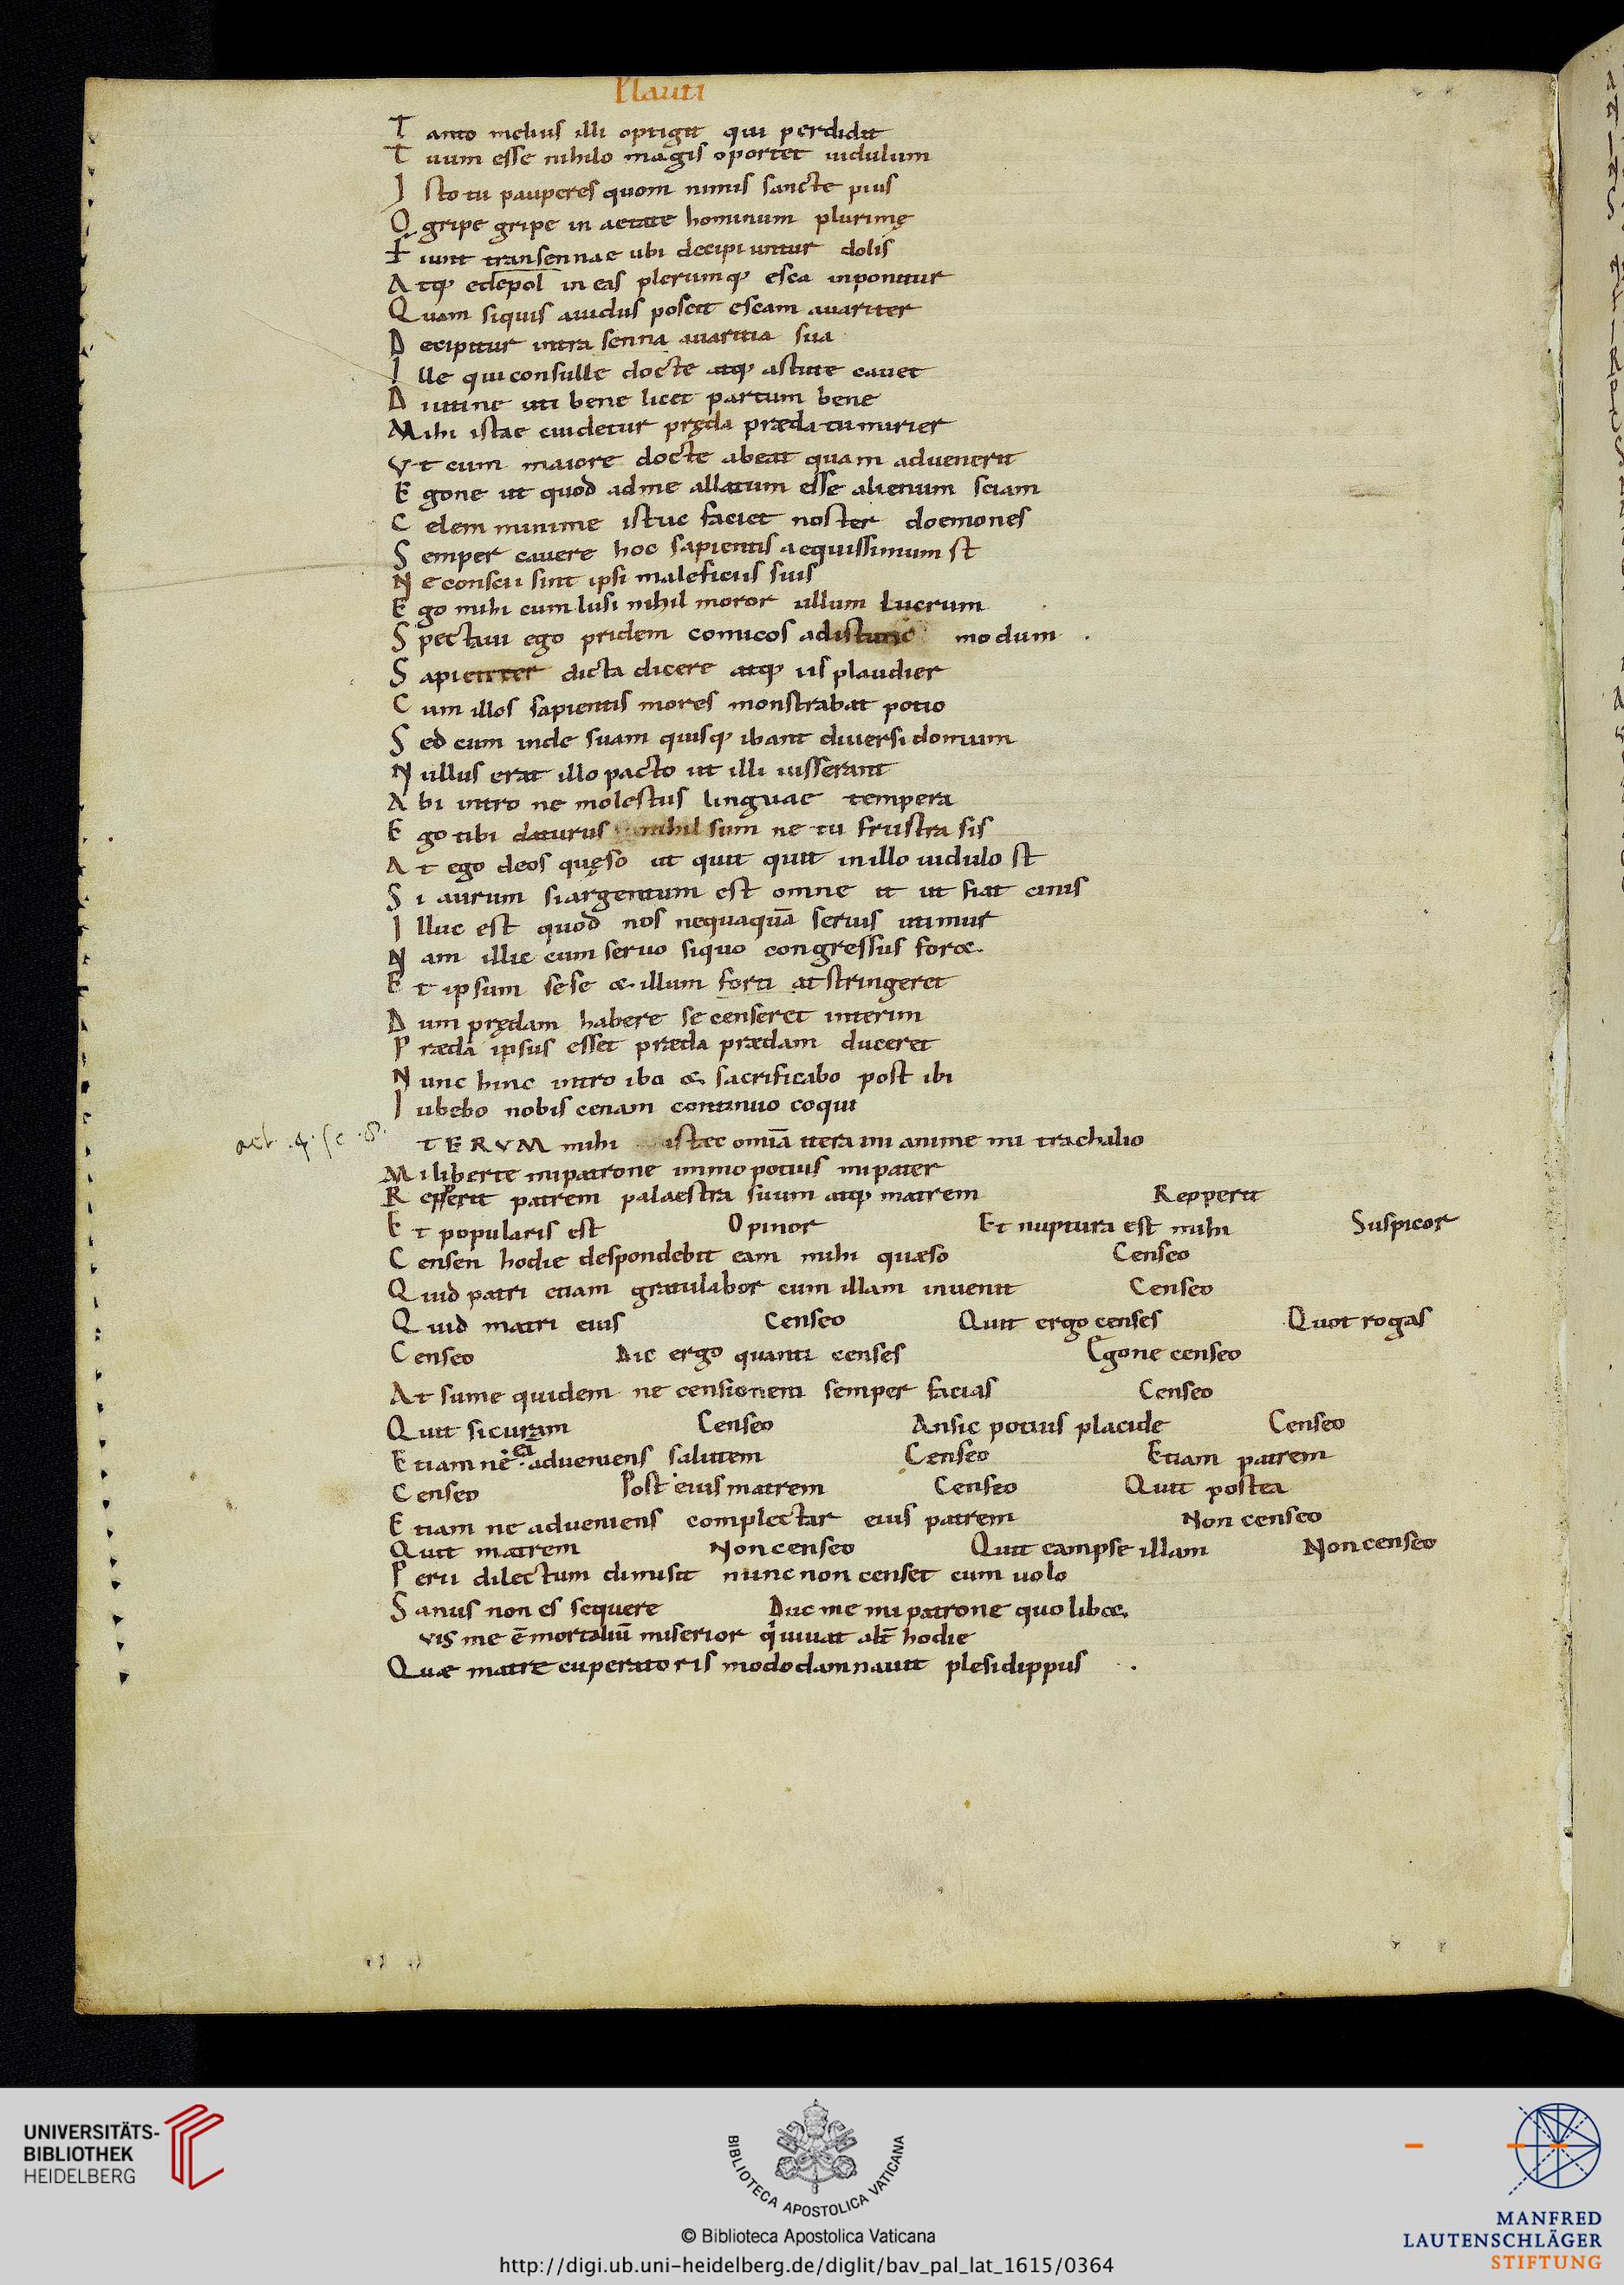 Plauti
T anto melius illi optigit qui perdidit
T uum esse nihilo magis oportet uidulum
I sto tu pauperes quom nimis sancte pius
O gripe gripe in aetate hominum plurimę
F iunt transennae ubi decipiuntur dolis
A tq; edepol in eas plerumq; esca inponitur
Q uam siquis auidus poscit escam auariter
D ecipitur intra senna auaritia sua
I lle qui consulle docte atq; astute cauet
D iutine uti bene licet partum bene
M ihi istac cuidetur pręda præda tumirier
V t cum maiore docte abeat quam aduenerit
E gone ut quod ad me allatum esse alienum sciam
C elem minime istuc faciet noster doemones
S emper cauere hoc sapientis aequissimum st
N e conscii sint ipsi maleficiis suis
E go mihi cum lusi nihil moror ullum lucrum
S pectaui ego pridem comicos ad istunc modum
S apienter dicta dicere atq; iis plaudier
C um illos sapientis mores monstrabat potio
S ed cum inde suam quisq; ibant diuersi domum
N ullus erat illo pacto ut illi iusserant
A bi intro ne molestus linguae tempera
E go tibi daturus nihil sum ne tu frustra sis
A t ego deos quęso ut quit quit in illo uidulo st
S i aurum si argentum est omne it ut fiat cinis
I lluc est quod nos nequaquā seruis utimur
N am illic cum seruo siquo congressus foret
E t ipsum sese et illum forti atstringeret
D um prędam habere se censeret interim
P ræda ipsus esset præda prædam duceret
N unc hinc intro ibo et sacrificabo post ibi
I ubebo nobis cenam continuo coqui
act .4. sc .8.
TERVM mihi istæc omīa itera mi anime mi trachalio
M i liberte mi patrone immo potius mi pater
R epperit patrem palaestra suum atq; matrem Repperit
E t popularis est Opinor Et nuptura est mihi Suspicor
C ensen hodie despondebit eam mihi quæso Censeo
Q uid patri etiam gratulabor cum illam inuenit Censeo
Q uid matri eius Censeo Quit ergo censes Quot rogas
C enseo Dic ergo quanti censes Egone censeo
A t sume quidem ne censionem semper facias Censeo
Q uit si curam Censeo An sic potius placide Censeo
E tiam ne ei adueniens salutem Censeo Etiam patrem
C enseo Post eius matrem Censeo Quit postea
E tiam ne adueniens complectar eius patrem Non censeo
Q uit matrem Non censeo Quit eampse illam Non censeo
P erii dilectum dimisit nunc non censet cum uolo
S anus non es sequere Duc me mi patrone quo libet
VIS me ē mortaliū miserior q̇ uiuat alt̄ hodie
Quæ matre cuperatoris modo damnauit plesidippus
UNIVERSITÄTS-
BIBLIOTHEK
HEIDELBERG
BIBLIOTECA APOSTOLICA VATICANA
© Biblioteca Apostolica Vaticana
http://digi.ub.uni-heidelberg.de/diglit/bav_pal_lat_1615/0364
MANFRED
LAUTENSCHLÄGER
STIFTUNG